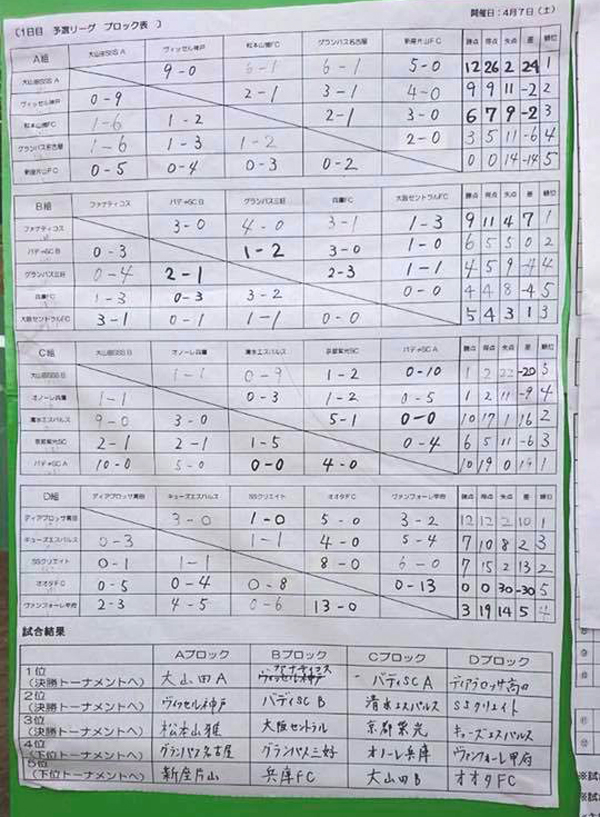 (1日目 予選リーグ ブロック表 )
開催日:4月7日(土)
A組 大山田SSS A ヴィッセル神戸 松本山雅FC グランパス名古屋 新座片山FC 勝点 得点 失点 差 順位
大山田SSS A 9-0 6-1 6-1 5-0 12 26 2 24 1
ヴィッセル神戸 0-9 2-1 3-1 4-0 9 9 11 -2 2
松本山雅FC 1-6 1-2 2-1 3-0 6 7 9 -2 3
グランパス名古屋 1-6 1-3 1-2 2-0 3 5 11 -6 4
新座片山FC 0-5 0-4 0-3 0-2 0 0 14 -14 5
B組 ファナティコス バディSC B グランパス三好 兵庫FC 大阪セントラルFC 勝点 得点 失点 差 順位
ファナティコス 3-0 4-0 3-1 1-3 9 11 4 7 1
バディSC B 0-3 1-2 3-0 1-0 6 5 5 0 2
グランパス三好 0-4 2-1 2-3 1-1 4 5 9 -4 4
兵庫FC 1-3 0-3 3-2 0-0 4 4 8 -4 5
大阪セントラルFC 3-1 0-1 1-1 0-0 5 4 3 1 3
C組 大山田SSS B オノーレ兵庫 清水エスパルス 京都紫光SC バディSC A 勝点 得点 失点 差 順位
大山田SSS B 1-1 0-9 1-2 0-10 1 2 22 -20 5
オノーレ兵庫 1-1 0-3 1-2 0-5 1 2 11 -9 4
清水エスパルス 9-0 3-0 5-1 0-0 10 17 1 16 2
京都紫光SC 2-1 2-1 1-5 0-4 6 5 11 -6 3
バディSC A 10-0 5-0 0-0 4-0 10 19 0 19 1
D組 ディアブロッサ高田 キューズエスパルス SSクリエイト オオタFC ヴァンフォーレ甲府 勝点 得点 失点 差 順位
ディアブロッサ高田 3-0 1-0 5-0 3-2 12 12 2 10 1
キューズエスパルス 0-3 1-1 4-0 5-4 7 10 8 2 3
SSクリエイト 0-1 1-1 8-0 6-0 7 15 2 13 2
オオタFC 0-5 0-4 0-8 0-13 0 0 30 -30 5
ヴァンフォーレ甲府 2-3 4-5 0-6 13-0 3 19 14 5 4
試合結果
Aブロック Bブロック Cブロック Dブロック
1位
(決勝トーナメントへ) 大山田A ファナティコス ヴィッセル神戸 バディSC A ディアブロッサ高田
2位
(決勝トーナメントへ) ヴィッセル神戸 バディSC B 清水エスパルス SSクリエイト
3位
(決勝トーナメントへ) 松本山雅 大阪セントラル 京都紫光 キューズエスパルス
4位
(下位トーナメントへ) グランパス名古屋 グランパス三好 オノーレ兵庫 ヴァンフォーレ甲府
5位
(下位トーナメントへ) 新座片山 兵庫FC 大山田B オオタFC